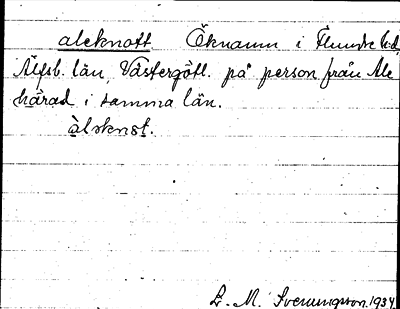 aleknott Öknamn i Flundre hd,
Älfsb. län, Västergötl. på person från Ale
härad i samma län.
àlsknst.
L. M. Svenungson. 1934